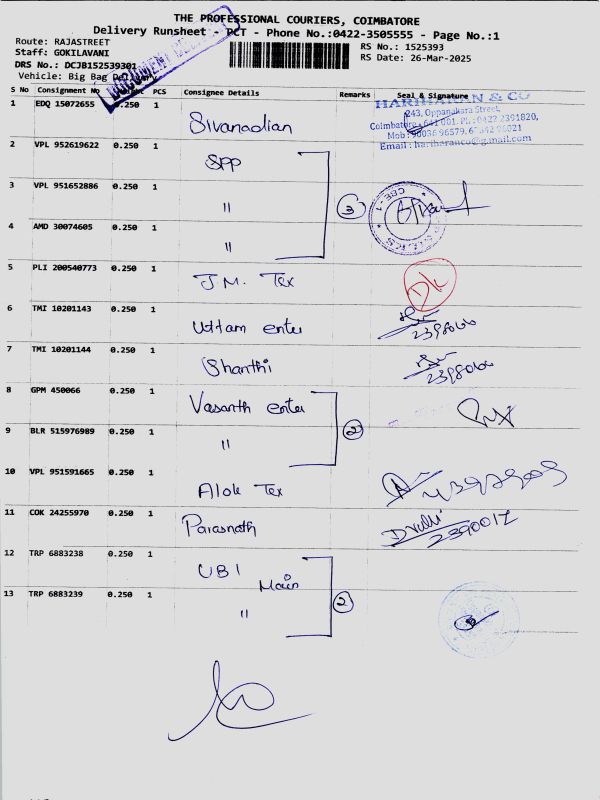 THE PROFESSIONAL COURIERS, COIMBATORE
Delivery Runsheet - PCT - Phone No.:0422-3505555 - Page No.:1
Route: RAJASTREET
RS No.: 1525393
Staff: GOKILAVANI
RS Date: 26-Mar-2025
DRS No.: DCJB152539301
Vehicle: Big Bag Delivery
S No Consignment No PCS Consignee Details Remarks Seal & Signature
HARIHARAN & CO
243, Oppanakara Street,
Coimbatore - 641 001. Ph: 0422 2391820,
Mob: 90036 96579,
Email : hariharanco@gmail.com
1 EDQ 15072655 0.250 1 Sivanadian
2 VPL 952619622 0.250 1 SPP
3 VPL 951652886 0.250 1 " 3
CBE - 1
4 AMD 30074605 0.250 1 "
5 PLI 200540773 0.250 1 J.M. Tex
6 TMI 10201143 0.250 1 Uttam enter
7 TMI 10201144 0.250 1 Shanthi
8 GPM 450066 0.250 1 Vasanth enter
2
9 BLR 515976989 0.250 1 "
10 VPL 951591665 0.250 1 Alok Tex
11 COK 24255970 0.250 1 Parasnath
12 TRP 6883238 0.250 1 UBI Main
2
13 TRP 6883239 0.250 1 "